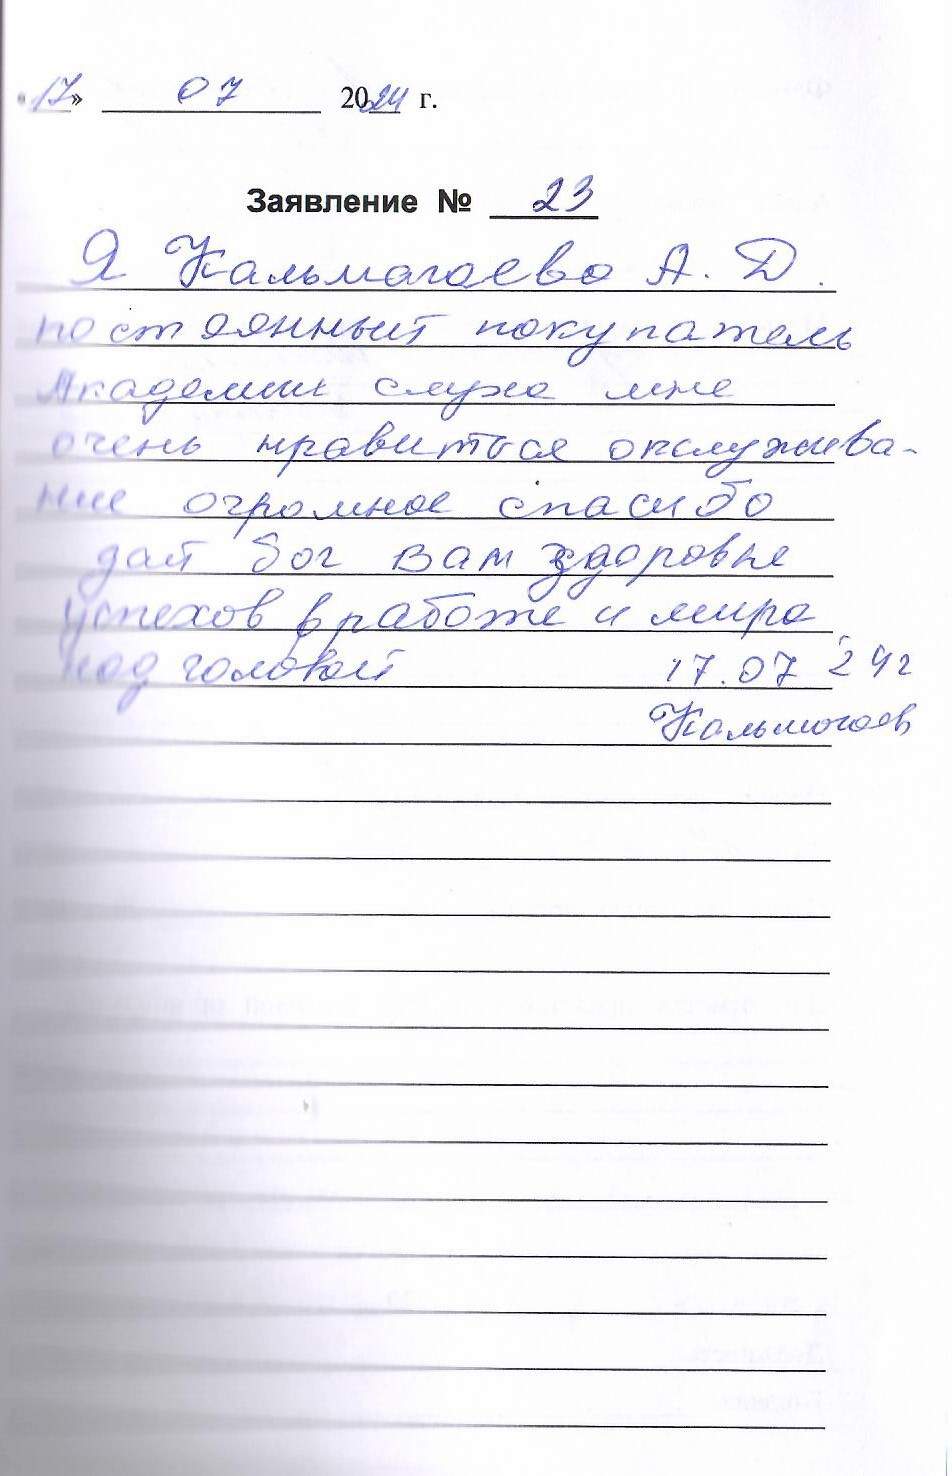 «17» 07 2024 г.
Заявление № 23
Я Кальмагаева А. Д.
постоянный покупатель
Академии слуха мне
очень нравиться обслужива-
ние огромное спасибо
дай бог вам здоровье
успехов в работе и мира
над головой 17.07 24г
Кальмагаев